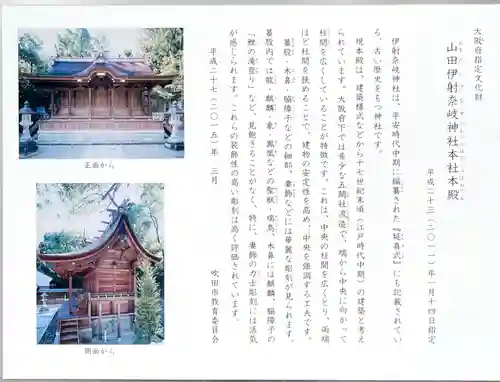 大阪府指定文化財
山田伊射奈岐神社本社本殿
平成二十三(二〇一一)年一月十四日指定
伊射奈岐神社は、平安時代中期に編纂された『延喜式』にも記載されてい
る、古い歴史をもつ神社です。
現本殿は、建築様式などから十七世紀末頃(江戸時代中期)の建築と考え
られています。大阪府下では希少な五間社流造で、端から中央に向かって
柱間を広くしていることが特徴です。これは、中央を広くとり、両端
ほど柱間を狭めることで、建物の安定性を高め、中央を強調する工夫です。
蟇股・木鼻・脇障子などの細部、妻飾などには華麗な彫刻が見られます。
蟇股内では龍・麒麟・象・鳳凰などの聖獣・瑞鳥、木鼻には麒麟、脇障子の
「鯉の滝登り」など、見飽きることがなく、特に、妻飾の力士彫刻には活気
が感じられます。これらの装飾性の高い彫刻は高く評価されています。
平成二十七(二〇一五)年 三月
吹田市教育委員会
正面から
側面から